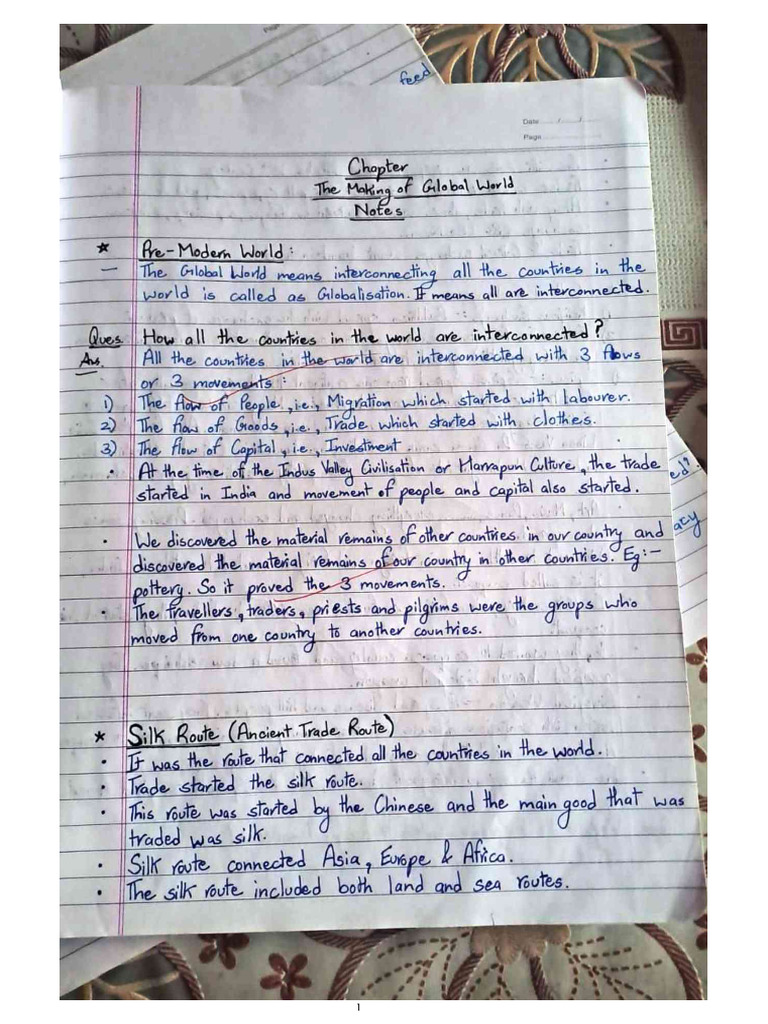 feed
Date / /
Page
Chapter
The Making of Global World
Notes
* Pre-Modern World:
— The Global World means interconnecting all the countries in the
world is called as Globalisation. It means all are interconnected.
Ques. How all the countries in the world are interconnected?
Ans. All the countries in the world are interconnected with 3 flows
or 3 movements:
1) The flow of People, i.e., Migration which started with Labourer.
2) The flow of Goods, i.e., Trade which started with clothes.
3) The flow of Capital, i.e., Investment.
• At the time of the Indus Valley Civilisation or Harrapun Culture, the trade
started in India and movement of people and capital also started.
ed?
• We discovered the material remains of other countries in our country and
acy
discovered the material remains of our country in other countries. Eg:-
pottery. So it proved the 3 movements.
• The travellers, traders, priests and pilgrims were the groups who
moved from one country to another countries.
* Silk Route (Ancient Trade Route)
• It was the route that connected all the countries in the world.
• Trade started the silk route.
• This route was started by the Chinese and the main good that was
traded was silk.
• Silk route connected Asia, Europe & Africa.
• The silk route included both land and sea routes.
1